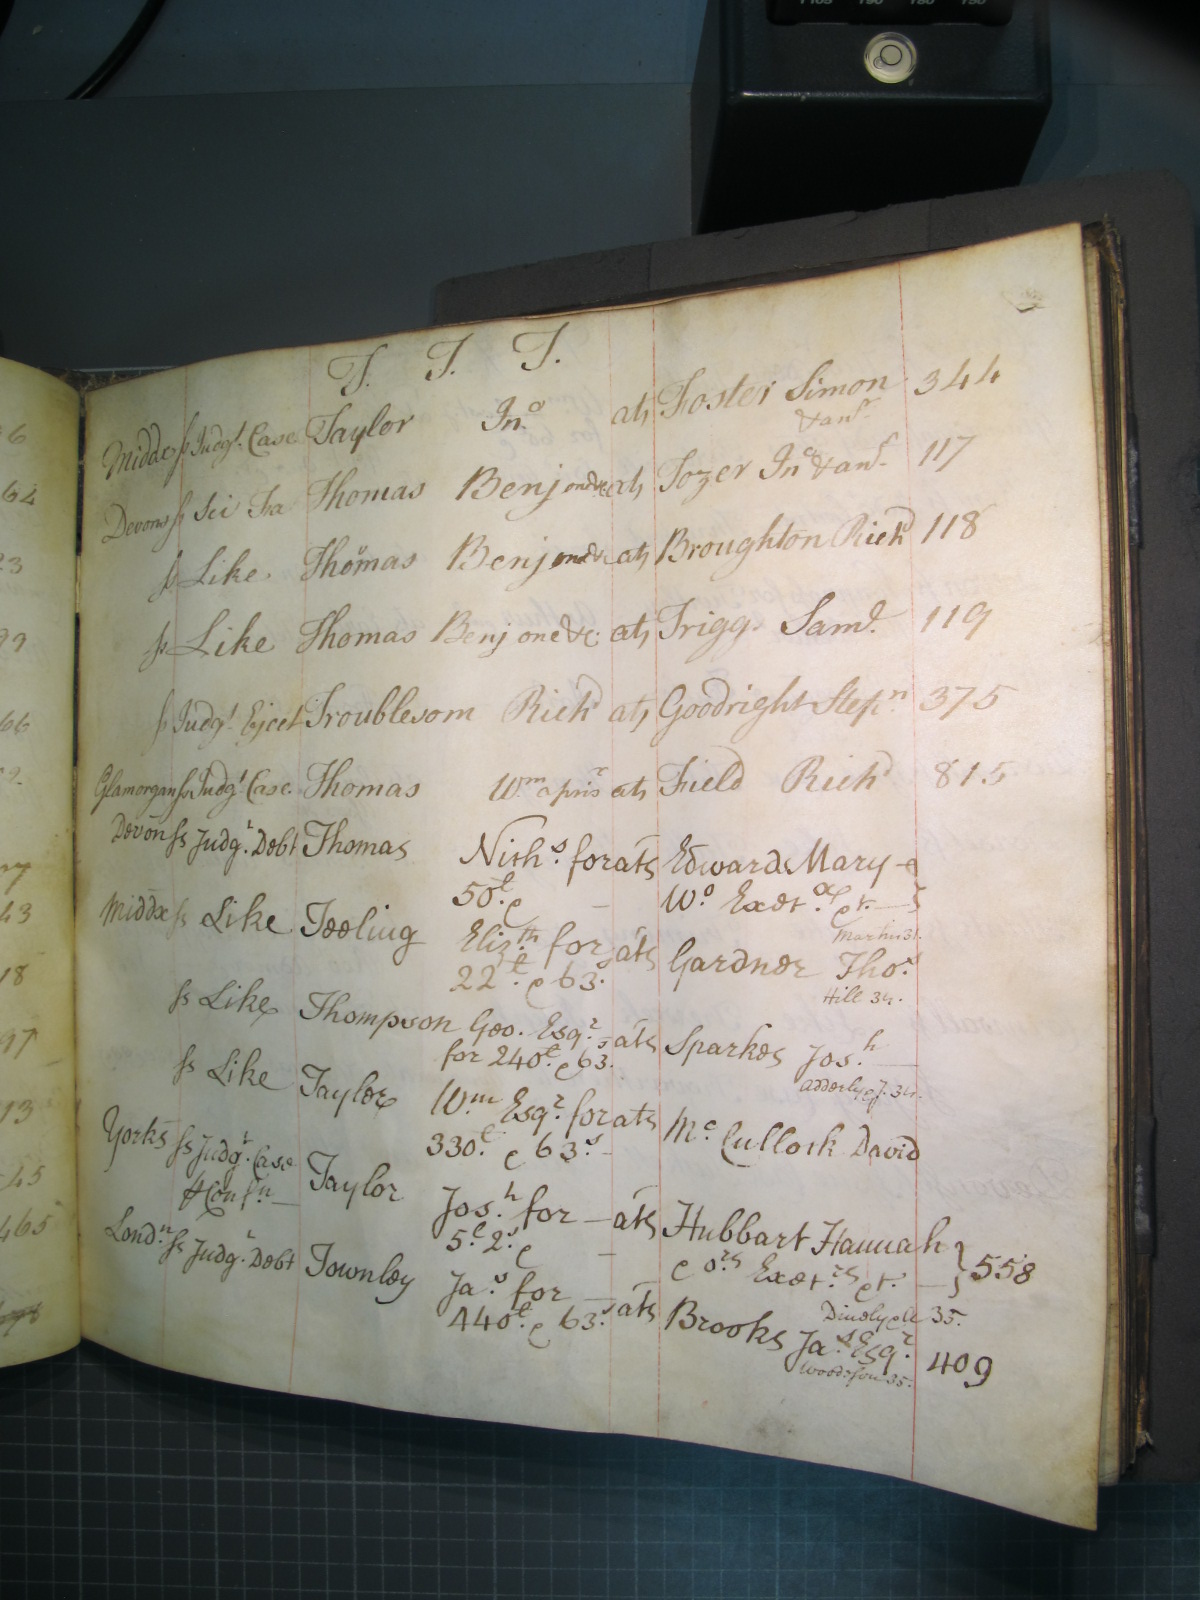 T. T. T.
Middx ss Judgt. Case Taylor Jno. ats Foster Simon 344
& anr.
Devons ss Sci Fa Thomas Benj one &c ats Tozer Jno & anr. 117
ss Like Thomas Benj one &c ats Broughton Richd 118
ss Like Thomas Benj one &c ats Trigg Saml. 119
ss Judgt Eject Troublesom Richd ats Goodright Stepn. 375
Glamorgan ss Judgt Case Thomas Wm. ats Field Richd 815
Devon ss Judgt. Debt Thomas Nichs. for ats Edwards Mary
50l. Wo. Exetx
Middx ss Like Tooling Elizth for ats Gardner Thos.
22l. e 63s. Hill 34.
ss Like Thompson Geo. Esqr. ats Sparkes Josh
for 240l. e 63. Adderly
ss Like Taylor Wm Esqr. for ats Mc. Cullock David
330l. e 63s.
Yorks ss Judgt. Case Taylor Josh for ats Hubbart Hannah
5l. 2s. e ors Exetrs 558
35.
Londn. ss Judgt. Debt Townley Jas. for ats Brooks Jas. Esqr. 409
440l. e 63s. 35.
6
64
23
99
66
43
18
97
13
45
465